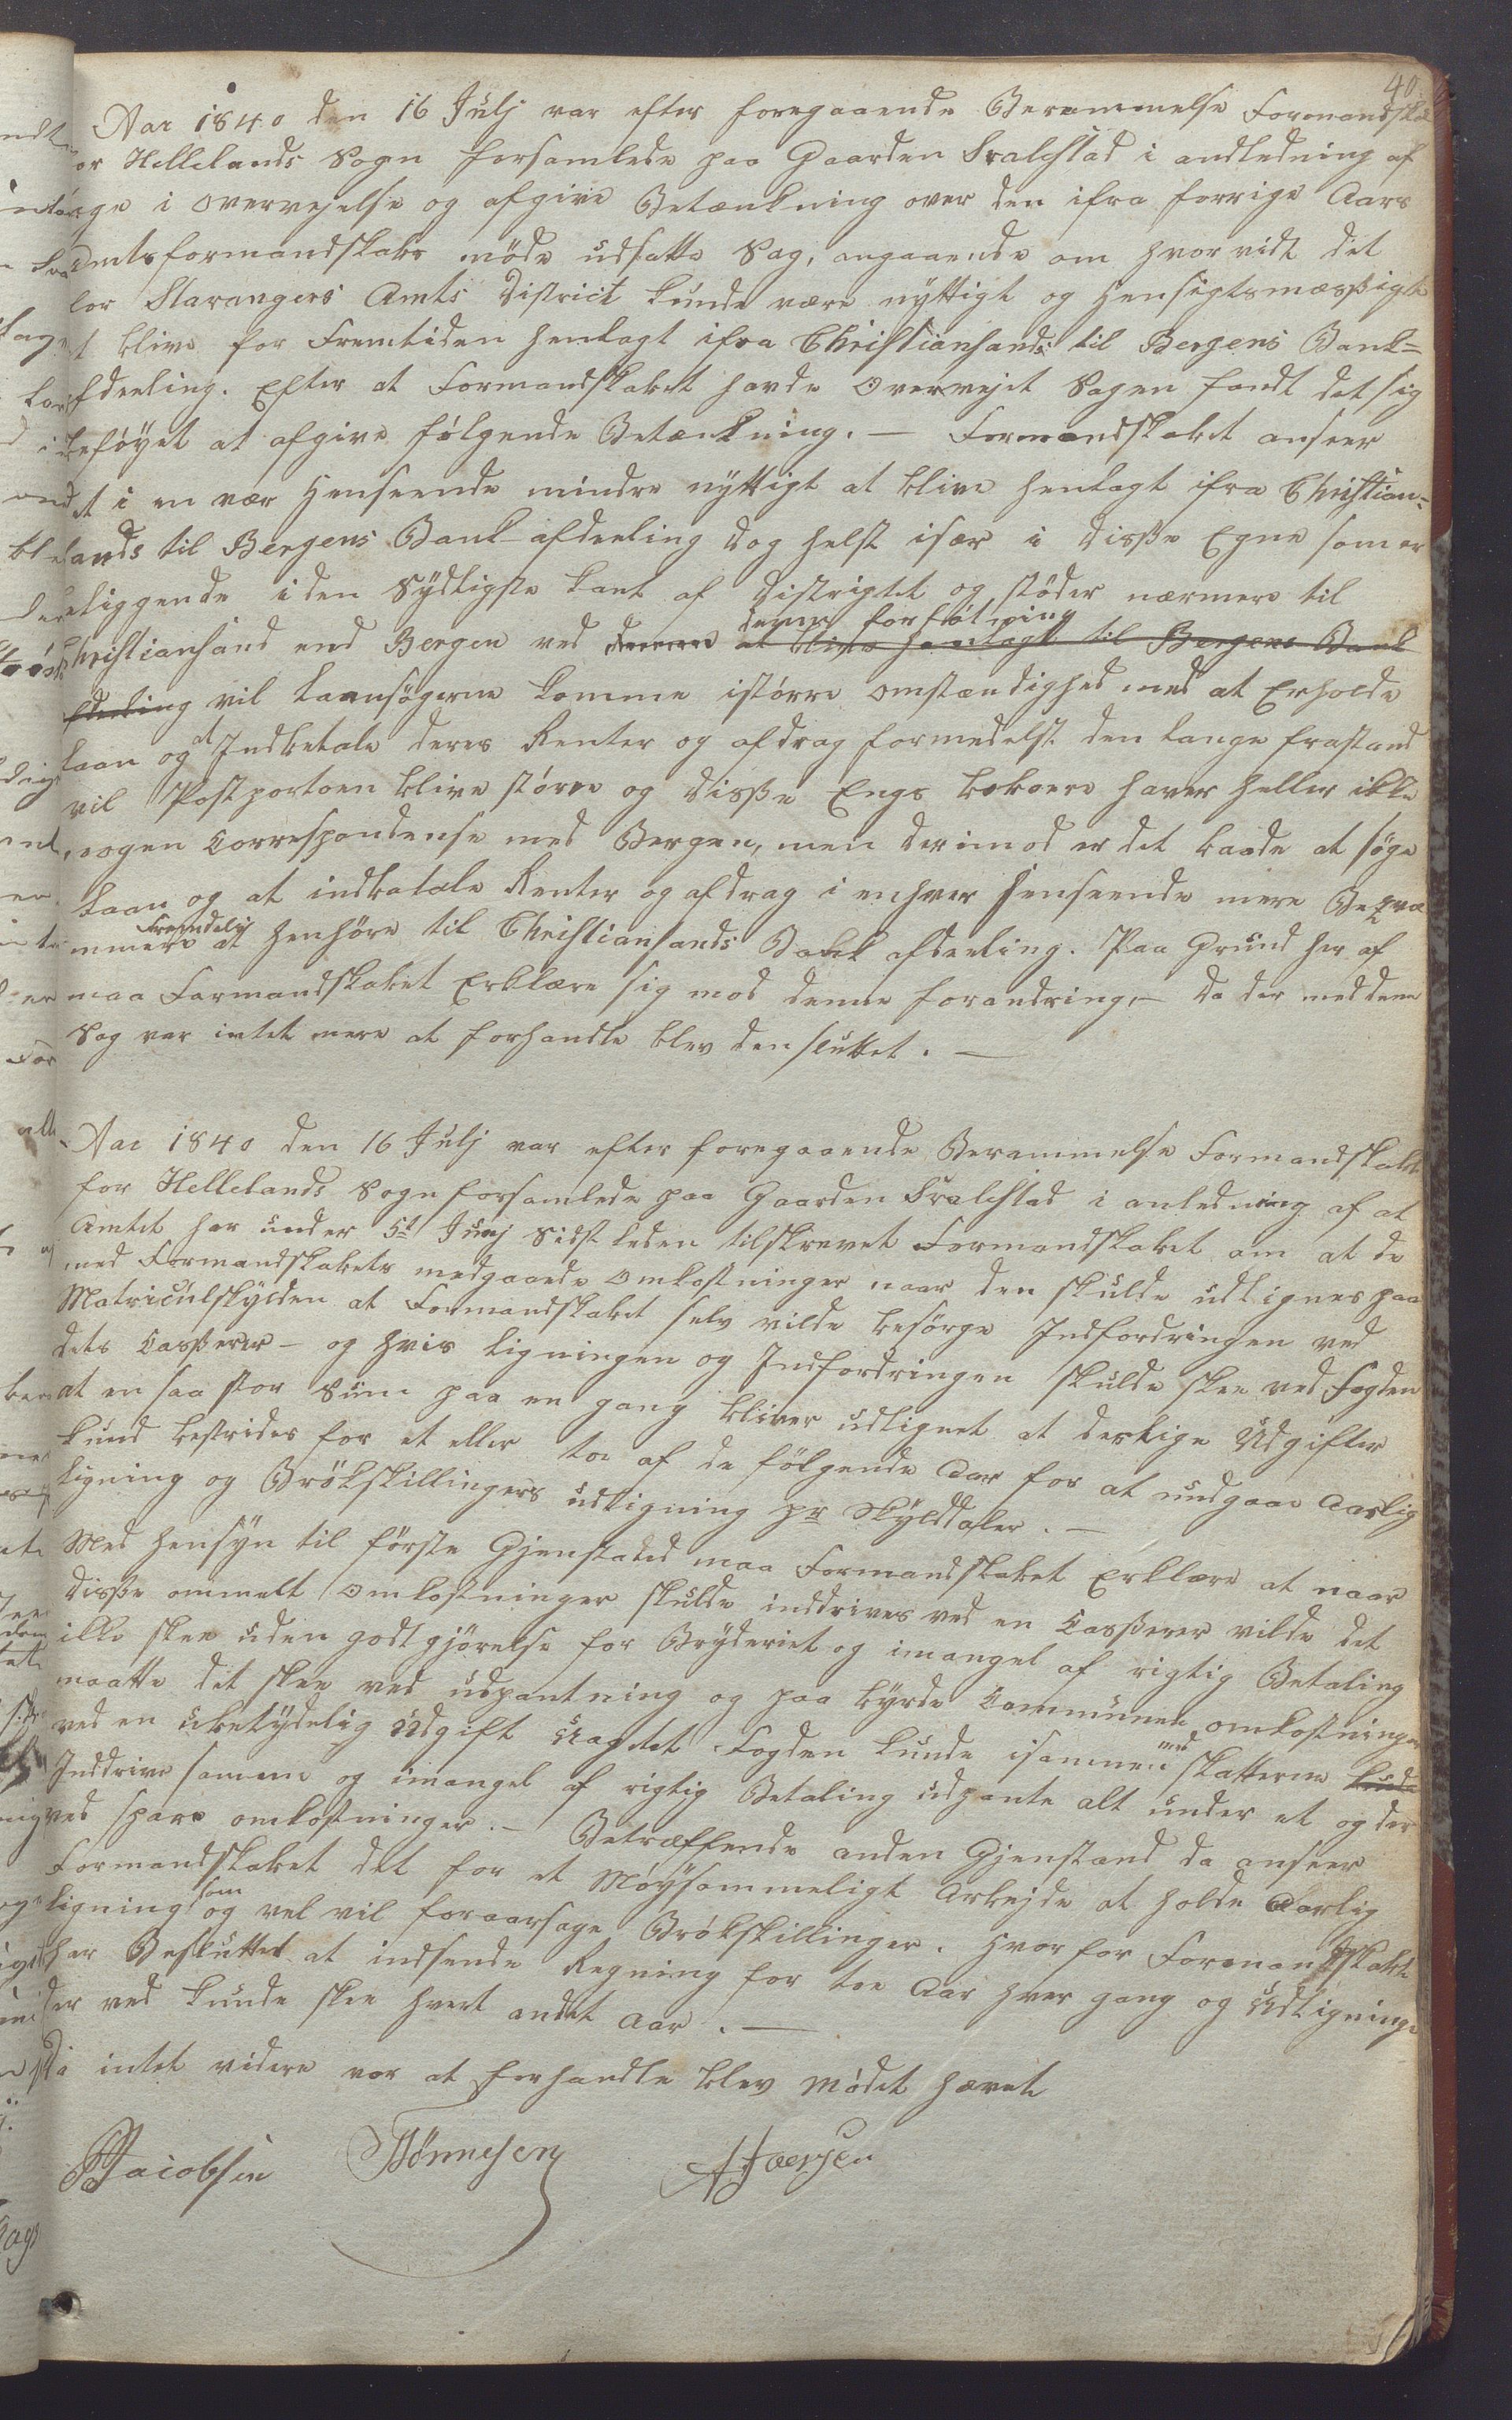 40.
Aar 1840 den 16 Julj var efter foregaaende Berammelse Formandskab
or Hellelands Sogn forsamlede paa Gaarden Svalestad i andledning af
ge i overvejelse og afgive Betænkning over den ifra forrige Aars
Amtsformandskabs möde udsatte Sag, angaaende om hvorvidt det
for Stavangers Amts District kunde være nyttigt og Hensigtsmæssigt
t blive for Fremtiden henlagt ifra Christiansands til Bergens Bank=
fdeeling. Efter at Formandskabet havde overvejet Sagen fandt det sig
beföyet at afgive fölgende Betænkning. — Formandskabet anseer
et i en vær Henseende mindre nyttigt at blive henlagt ifra Christian=
sands til Bergens Bank-afdeeling dog helst især i disse Egne som er
beliggende i den Sydligste kant af Distrigtet og stöder nærmere til
denne forflötning
Christiansand end Bergen ved at blive henlagt til Bergens Bank
fdeeling vil laansögerne komme i större omstændighed med at Erholde
laan og at Indbetale deres Renter og afdrag formedelst den lange frastand
vil Postportoen blive större og disse Engs beboere haver heller ikke
nogen Correspondense med Bergen, men derimod er det baade at söge
laan og at indbetale Renter og afdrag i enhver henseende mere Beqvæ
mmere Fremdeles at henhöre til Christiansands Bank afdeeling. Paa Grund her af
maa Formandskabet Erklære sig mod denne forandring, — da der med denne
Sag var intet mere at forhandle blev den sluttet. —
Aar 1840 den 16 Julj var efter foregaaende Berammelse Formandskabet
for Hellelands Sogn forsamlede paa Gaarden Svalestad i anledning af at
Amtet har under 5t Junj sidst leden tilskrevet Formandskabet om at de
med Formandskabets medgaaede Omkostninger naar den skulde udlignes paa
Matriculskylden at Formandskabet selv vilde besörge Indfordringen ved
dets Casserer — og hvis ligningen og Indfordringen skulde skee ved Fogden
at en saa stor Sum paa en gang bliver udlignet at deslige Udgifter
kund bestrides for et eller toe af de fölgende Aar for at undgaae Aarlig
ligning og Brökskillingers udligning pr Skylddaler. —
Med Hensyn til förste Gjenstand maa Formandskabet Erklære at naar
disse ommelt Omkostninger skulde inddrives ved en Casserer vilde det
ikke skee uden godtgjörelse for Bryderiet og imangel af rigtig Betaling
maatte det skee ved udpantning og paa byrde Communen omkostninger
ved en ubetydelig Udgift uagtet Fogden kunde isammen med skatterne
Inddrive samme og imangel af rigtig Betaling udpante alt under et og der
ved spare omkostninger. — Betræffende anden Gjenstand da anseer
Formandskabet det for et Möysommeligt Arbejde at holde Aarlig
ligning som og vel vil foraarsage Brökskillinger. Hvorfor Formandskabet
har Besluttet at indsende Regning for toe Aar hver gang og Udligninge
der ved kunde skee hvert andet Aar. —
Da intet videre var at forhandle blev Mödet hævet
Jacobsen Tönnesen A Iversen